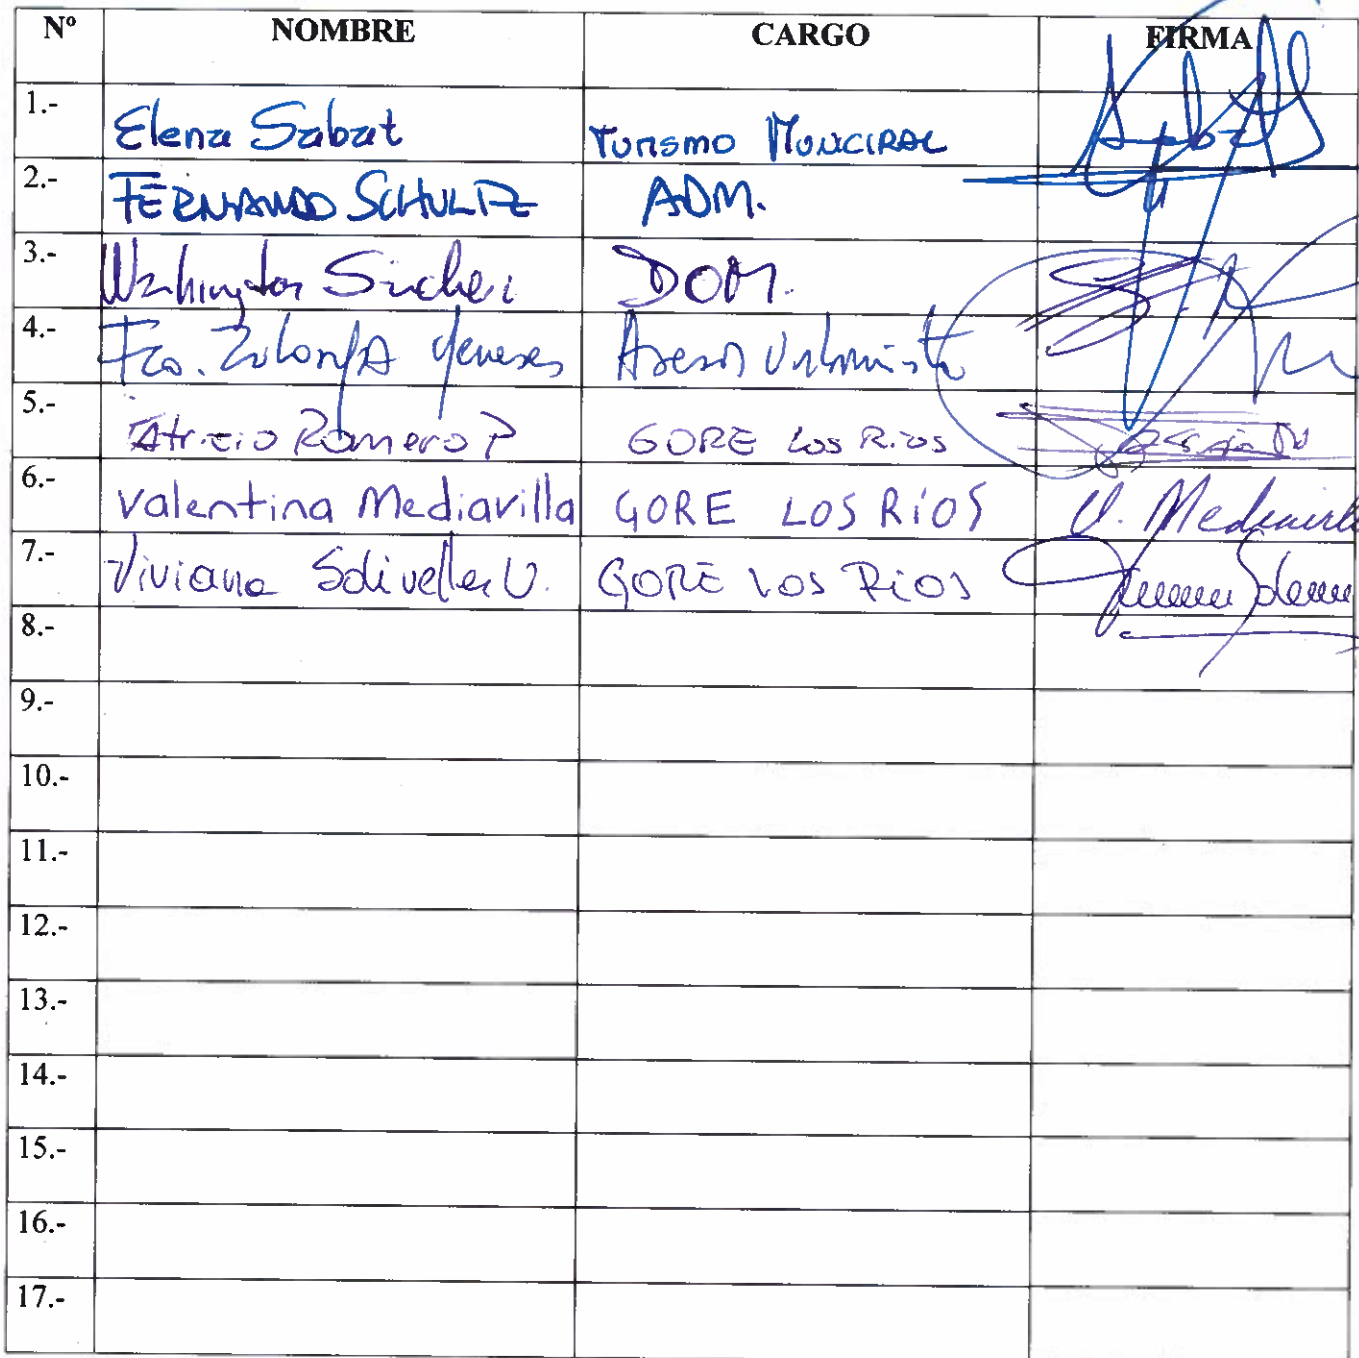 Nº NOMBRE CARGO FIRMA
1.- Elena Sabat Turismo Municipal
2.- FERNANDO SCHULTZ ADM.
3.- Washington DOM.
4.- Fco. Meneses Asesor Urbanista
5.- Patricio Romero P GORE Los Rios
6.- Valentina Mediavilla GORE LOS RÍOS V. Mediavilla
7.- Viviana GORE LOS RIOS
8.-
9.-
10.-
11.-
12.-
13.-
14.-
15.-
16.-
17.-